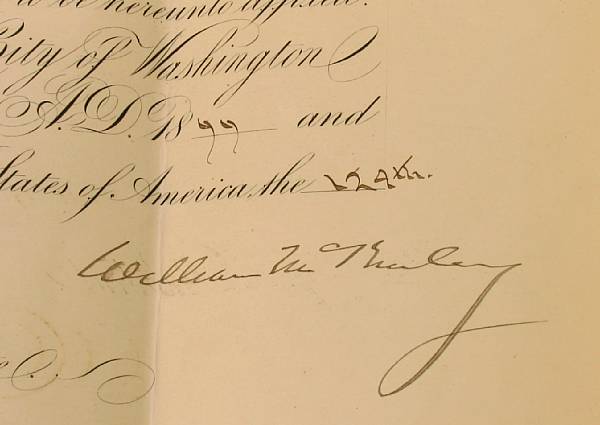 to be hereunto affixed.
City of Washington
A.D. 1899 and
States of America the 124th.
William McKinley